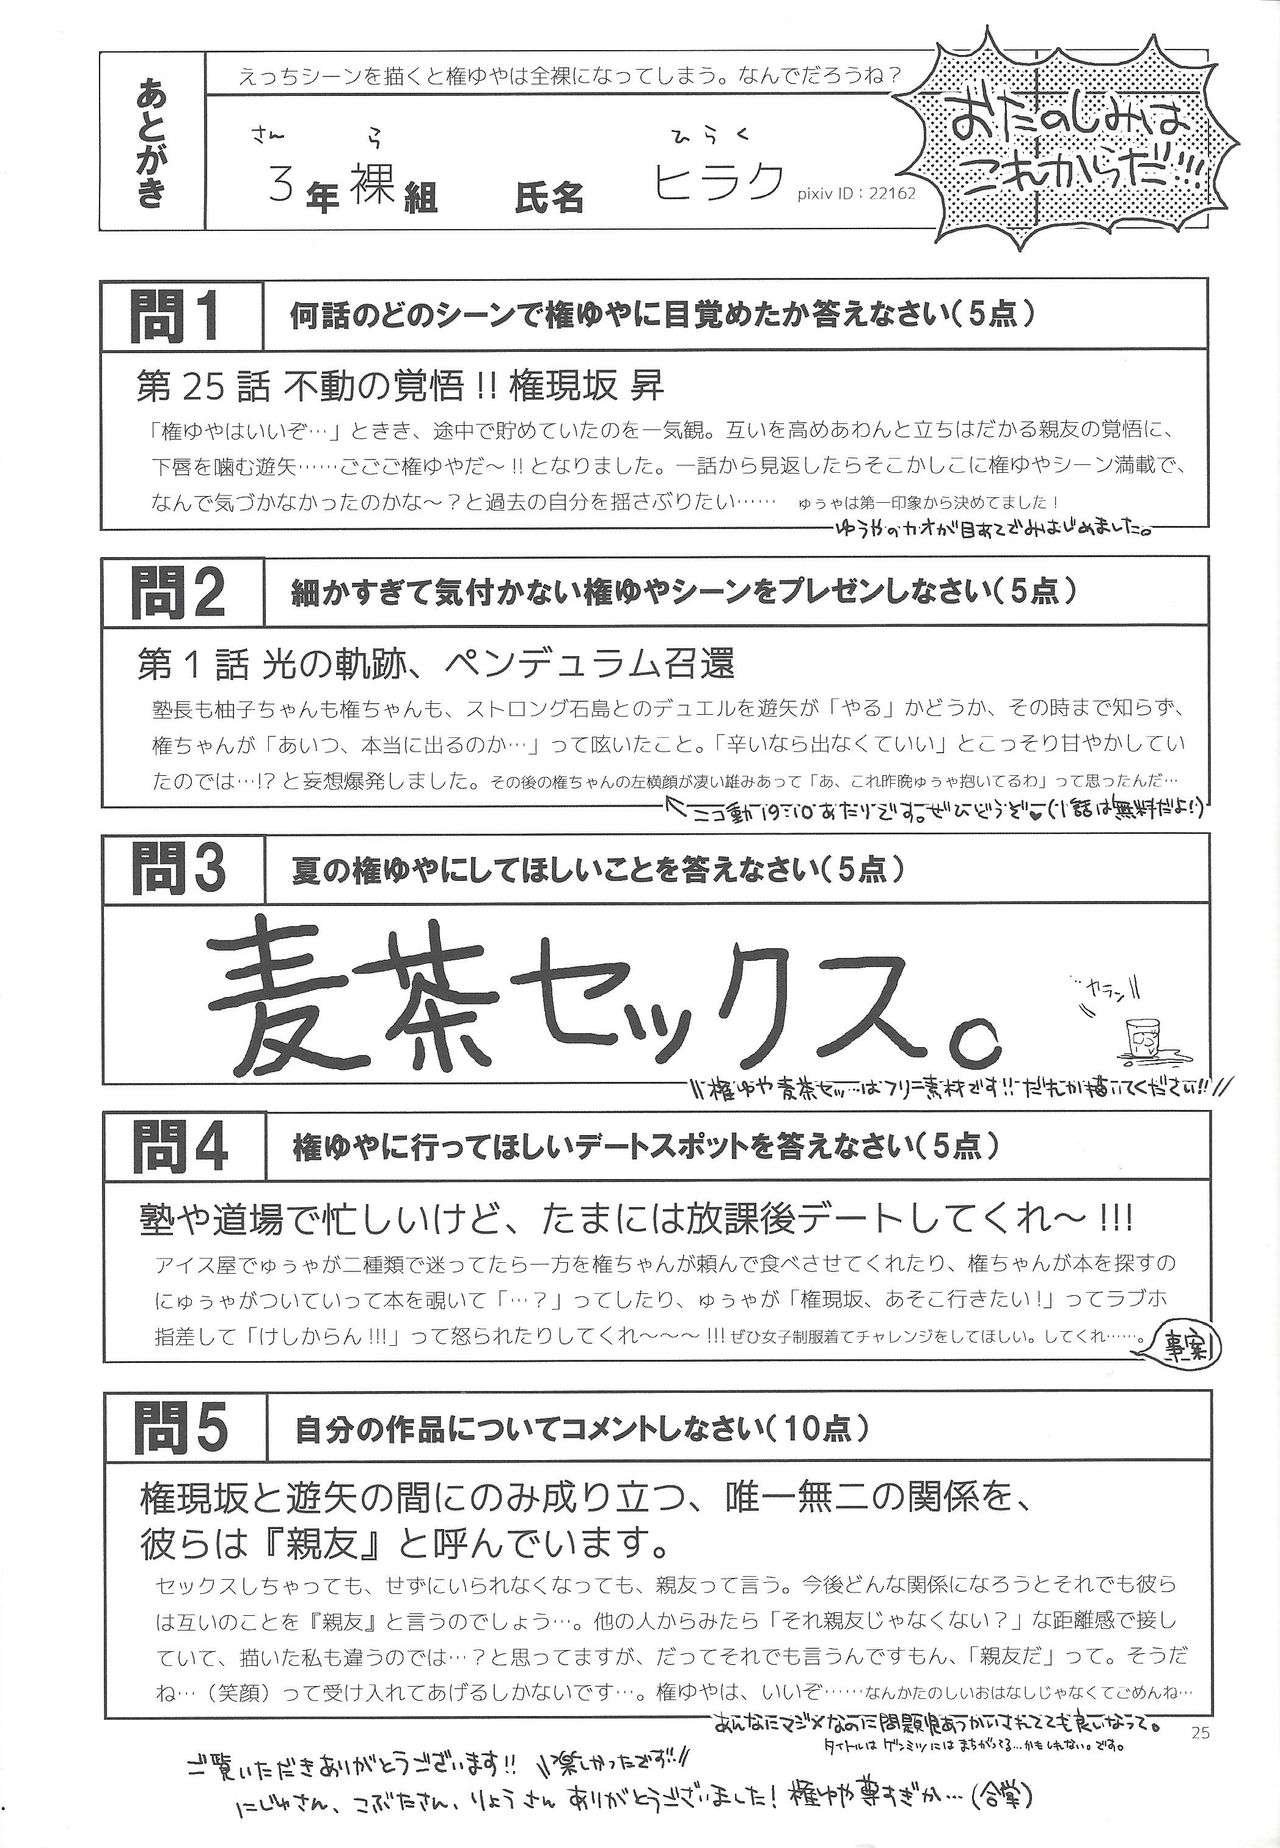 あとがき
えっちシーンを描くと権ゆやは全裸になってしまう。なんでだろうね?
さん ら ひらく
3年裸組 氏名 ヒラク pixiv ID:22162
おたのしみは
これからだ!!!
問1 何話のどのシーンで権ゆやに目覚めたか答えなさい(5点)
第25話 不動の覚悟!!権現坂 昇
「権ゆやはいいぞ…」ときき、途中で貯めていたのを一気観。互いを高めあわんと立ちはだかる親友の覚悟に、
下唇を噛む遊矢……ごごご権ゆやだ~!!となりました。一話から見返したらそこかしこに権ゆやシーン満載で、
なんで気づかなかったのかな~?と過去の自分を揺さぶりたい…… ゅぅゃは第一印象から決めてました!
ゆうやのカオが目あてでみはじめました。
問2 細かすぎて気付かない権ゆやシーンをプレゼンしなさい(5点)
第1話 光の軌跡、ペンデュラム召還
塾長も柚子ちゃんも権ちゃんも、ストロング石島とのデュエルを遊矢が「やる」かどうか、その時まで知らず、
権ちゃんが「あいつ、本当に出るのか…」って呟いたこと。「辛いなら出なくていい」とこっそり甘やかしてい
たのでは…!?と妄想爆発しました。その後の権ちゃんの左横顔が凄い雄みあって「あ、これ昨晩ゅぅゃ抱いてるわ」って思ったんだ…
ニコ動19:10あたりです。ぜひどうぞー♥(1話は無料だよ!)
問3 夏の権ゆやにしてほしいことを答えなさい(5点)
麦茶セックス。
カラン
権ゆや麦茶セッ…はフリー素材です!!だれか描いてください!!
問4 権ゆやに行ってほしいデートスポットを答えなさい(5点)
塾や道場で忙しいけど、たまには放課後デートしてくれ~!!!
アイス屋でゅぅゃが二種類で迷ってたら一方を権ちゃんが頼んで食べさせてくれたり、権ちゃんが本を探すの
にゅぅゃがついていって本を覗いて「…?」ってしたり、ゅぅゃが「権現坂、あそこ行きたい!」ってラブホ
指差して「けしからん!!!」って怒られたりしてくれ~~~!!!ぜひ女子制服着てチャレンジをしてほしい。してくれ……。
事案
問5 自分の作品についてコメントしなさい(10点)
権現坂と遊矢の間にのみ成り立つ、唯一無二の関係を、
彼らは『親友』と呼んでいます。
セックスしちゃっても、せずにいられなくなっても、親友って言う。今後どんな関係になろうとそれでも彼ら
は互いのことを『親友』と言うのでしょう…。他の人からみたら「それ親友じゃなくない?」な距離感で接し
ていて、描いた私も違うのでは…?と思ってますが、だってそれでも言うんですもん、「親友だ」って。そうだ
ね…(笑顔)って受け入れてあげるしかないです…。権ゆやは、いいぞ……なんかたのしいおはなしじゃなくてごめんね…
あんなにマジメなのに問題児あつかいされてても良いなって。
タイトルはゲンミツにはまちがってる…かもしれない。です。
25
ご覧いただきありがとうございます!! 楽しかったです!!
にじゅさん、こぶたさん、りょうさんありがとうございました!権ゆや尊すぎか…(合掌)